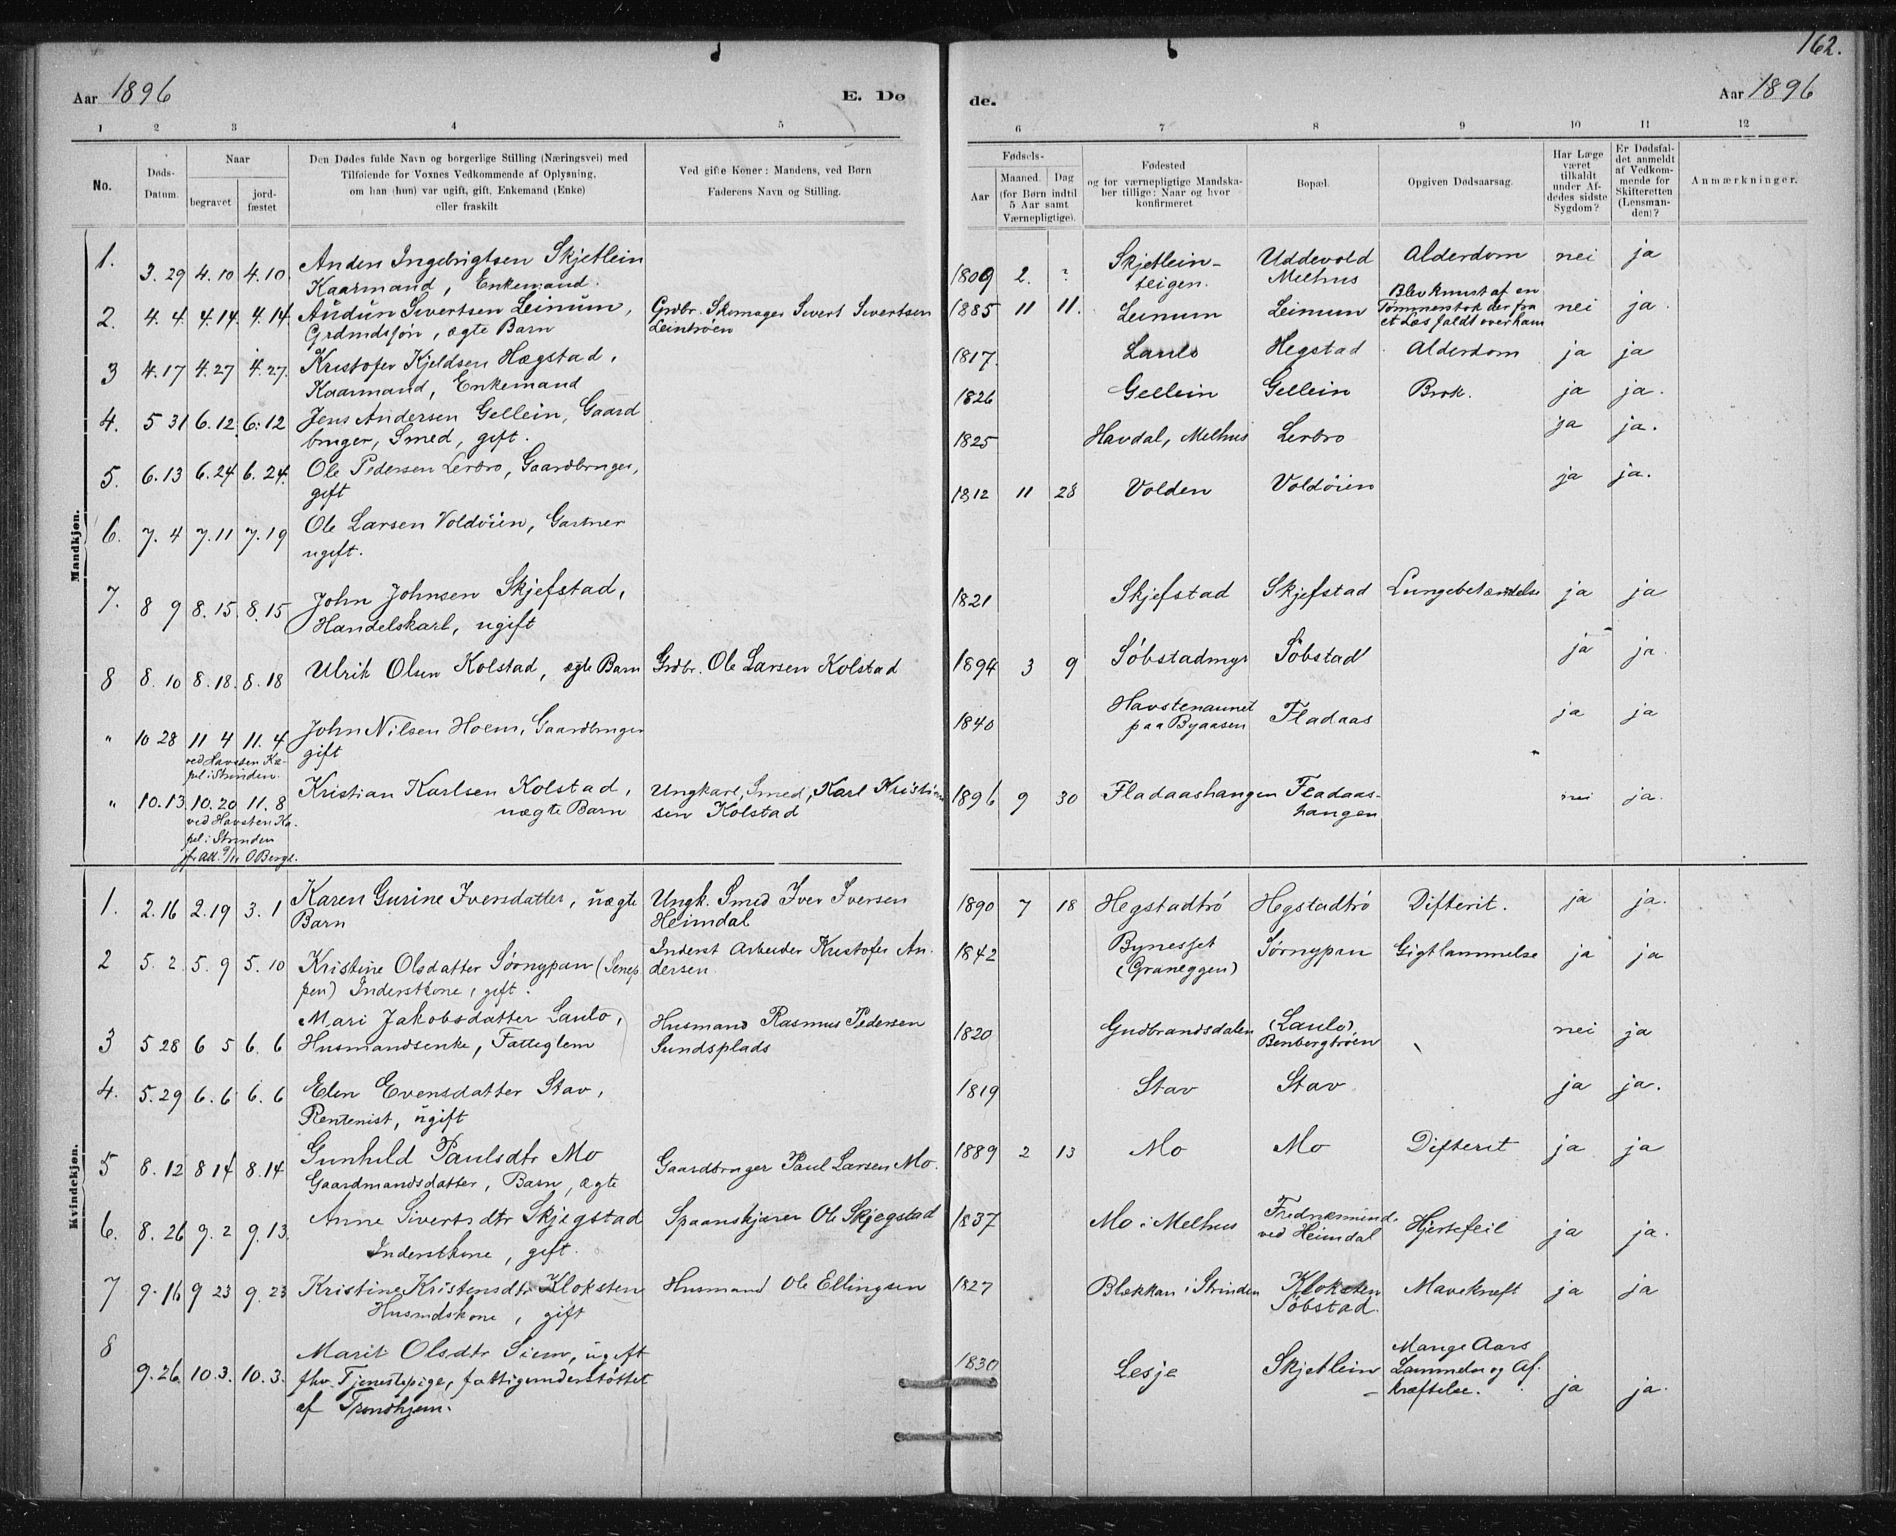 162.
Aar 1896
E. Dø
de.
Aar 1896
1 2 3 4 5 6 7 8 9 10 11 12
No.
Døds-
Datum.
Naar
begravet
jord-
fæstet
Den Dødes fulde Navn og borgerlige Stilling (Næringsvei) med
Tilføiende for Voxnes Vedkommende af Oplysning,
om han (hun) var ugift, gift, Enkemand (Enke)
eller fraskilt
Ved gifte Koner: Mandens, ved Børn
Faderens Navn og Stilling.
Fødsels-
Aar
Maaned. Dag
(for Børn indtil
5 Aar samt
Værnepligtige).
Fødested
og for værnepligtige Mandska-
ber tillige: Naar og hvor
konfirmeret
Bopæl.
Opgiven Dødsaarsag.
Har Læge
været
tilkaldt
under Af-
dødes sidste
Sygdom?
Er Dødsfal-
det anmeldt
af Vedkom-
mende for
Skifteretten
(Lensman-
den)?
Anmærkninger.
Mandkjøn.
1. 3. 29 4. 10 4. 10. Anders Ingebrigtsen Skjetlein
Kaarmand, Enkemand.
1809 2. ? Skjetlein-
teigen. Uddevold
Melhus Alderdom nei ja
2. 4. 4. 4. 14 4. 14. Audun Sivertsen Leinum,
Grdmdssøn, ægte Barn
Grdbr. Skomager Sivert Sivertsen
Leintrøen
1885 11 11. Leinum Leinum Blev knust af en
Tømmerstok der fra
et Læs faldt over ham nei ja
3 4. 17 4. 27 4. 27. Kristofer Kjeldsen Hægstad,
Kaarmand, Enkemand
1817. Laulo Hegstad Alderdom ja ja
4. 5 31 6. 12 6. 12 Jens Andersen Gellein, Gaard
bruger, Smed, gift.
1826 Gellein Gellein Brok. ja ja.
5. 6. 13 6. 24 6. 24. Ole Pedersen Lerbro, Gaardbruger,
gift
1825 Havdal, Melhus Lerbro ja ja.
6. 7. 4 7. 11 7. 19 Ole Larsen Voldøien, Gartner
ugift.
1812 11 28 Volden Voldøien ja ja.
7. 8 9 8. 15. 8. 15 John Johnsen Skjefstad,
Handelskarl, ugift
1821 Skjefstad Skjefstad Lungebetændelse ja ja
8 8. 10 8. 18. 8. 18 Ulrik Olsen Kolstad, ægte Barn Grdbr. Ole Larsen Kolstad
1894 3 9 Söbstadmyr Söbstad ja ja.
" 10 28 11 4 11. 4 John Nilsen Hoem, Gaardbruger
gift
ved Havsten Ka-
pel i Strinden.
1840 Havstenaunet
paa Byaasen Fladaas ja ja
" 10. 13. 10. 20 11. 8 Kristian Karlsen Kolstad,
uægte Barn
ved Havsten Ka-
pel i Strinden
Ungkarl, Smed, Karl Kristian
sen Kolstad
1896 9 30 Fladaashangen Fladaas-
hangen nei ja.
Kvindekjøn.
1. 2. 16 2. 19 3. 1 Karen Gurine Iversdatter, uægte
Barn
Ungk. Smed Iver Iversen
Heimdal
1890 7 18 Hegstadtrö Hegstadtrö Difterit. ja ja.
2 5. 2. 5. 9 5. 10 Kristine Olsdatter Sörnypan (Senep
pen) Inderstkone, gift.
Inderst Arbeider Kristofer An-
dersen
1842 Bynesset
(Graneggen) Sørnypan Gigtlammelse ja ja
3 5 28 6 5 6. 6 Mari Jakobsdatter Laulo,
Husmandsenke, Fattiglem
Husmand Rasmus Pedersen
Sundsplads
1820 Gudbrandsdalen (Laulo)
Benbergtrøen nei ja
4. 5. 29 6. 6 6. 6 Elen Evensdatter Stav,
Rentenist, ugift
1819 Stav Stav ja ja.
5 8. 12 8 14 8. 14 Gunhild Paulsdtr Mo
Gaardmandsdatter, Barn, ægte
Gaardbruger Paul Larsen Mo.
1889 2 13 Mo Mo Difterit ja ja
6. 8. 26 9. 2 9. 13. Anne Sivertsdtr Skjegstad
Inderstkone, gift.
Spaanskjærer Ole Skjegstad
1837 Mo i Melhus Fredriksminde
ved Heimdal Hjertefeil ja ja.
7 9. 16 9 23 9. 23 Kristine Kristensdtr Kloksten
Husmdskone, gift
Husmand Ole Ellingsen
1827 Blekkan i Strinden Kloksten
Söbstad. Mavekræft ja ja
8 9. 26 10. 3. 10. 3. Marit Olsdtr Siem, ugift
fhv. Tjenestepige, fattigunderstöttet
af Trondhjem.
1830 Lesje Skjetlein Mange Aars
Lammelse og Af-
kræftelse. ja ja.